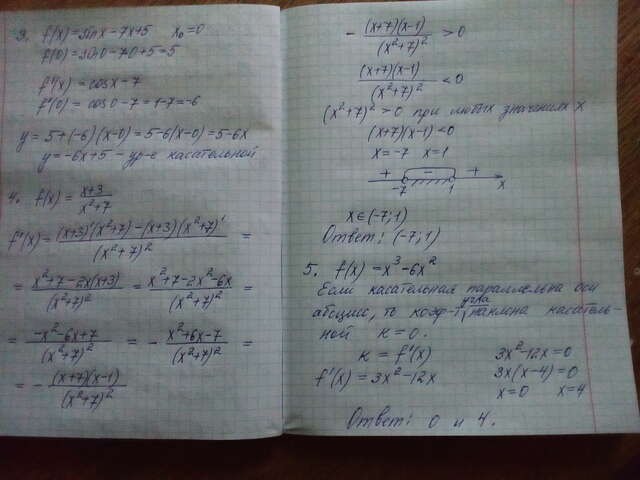 3. f(x) = sin x - 7x+5   x₀=0
f(0) = sin 0 - 7·0 + 5 = 5
f'(x) = cos x - 7
f'(0) = cos 0 - 7 = 1-7 = -6
y = 5+(-6)(x-0) = 5-6(x-0) = 5-6x
y = -6x+5 - ур-е касательной
4. f(x) = (x+3)/(x²+7)
f'(x) = ((x+3)'(x²+7) - (x+3)(x²+7)')/(x²+7)² =
= (x²+7-2x(x+3))/(x²+7)² = (x²+7-2x²-6x)/(x²+7)² =
= (-x²-6x+7)/(x²+7)² = - (x²+6x-7)/(x²+7)² =
= - ((x+7)(x-1))/(x²+7)²
- ((x+7)(x-1))/(x²+7)² > 0
((x+7)(x-1))/(x²+7)² < 0
(x²+7)² > 0 при любых значениях x
(x+7)(x-1) < 0
x = -7   x = 1
+ - +
-7 1 x
x∈(-7;1)
Ответ: (-7;1)
5. f(x) = x³ - 6x²
Если касательная параллельна оси
абсцисс, то коэф-т угла наклона касатель-
ной к = 0.
к = f'(x)   3x²-12x=0
f'(x) = 3x²-12x   3x(x-4)=0
x=0   x=4
Ответ: 0 и 4.